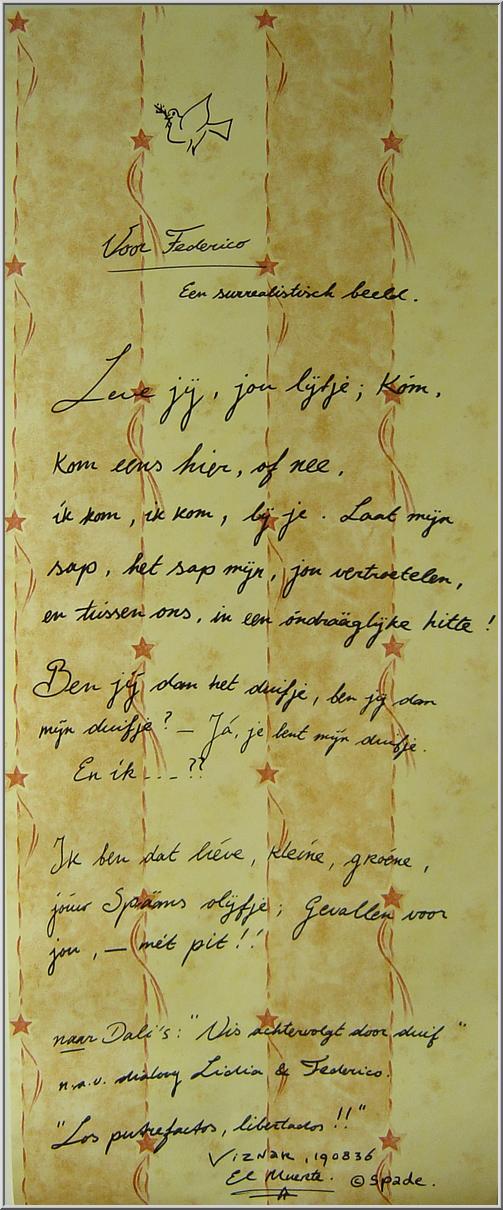 Voor Federico
Een surrealistisch beeld.
Leve jij, jou lijfje; Kóm,
kom eens hier, of nee,
ik kom, ik kom, bij je. Laat mijn
sap, het sap mijn, jou vertroetelen,
en tussen ons, in een óndrááglijke hitte!
Ben jíj dan het duifje, ben jij dan
mijn duifje? _ Já, je bent mijn duifje.
En ík ... ??
Ik ben dat liéve, kleíne, groéne,
joúw Spaáns olijfje; Gevallen voor
jou, _ mét pit!!
naar Dali's: "Vis achtervolgt door duif"
n.a.v. dialoog Lidia & Federico.
"Los putrefactos, libertados!!"
Viznar, 190836
El Muerte. © Spade.